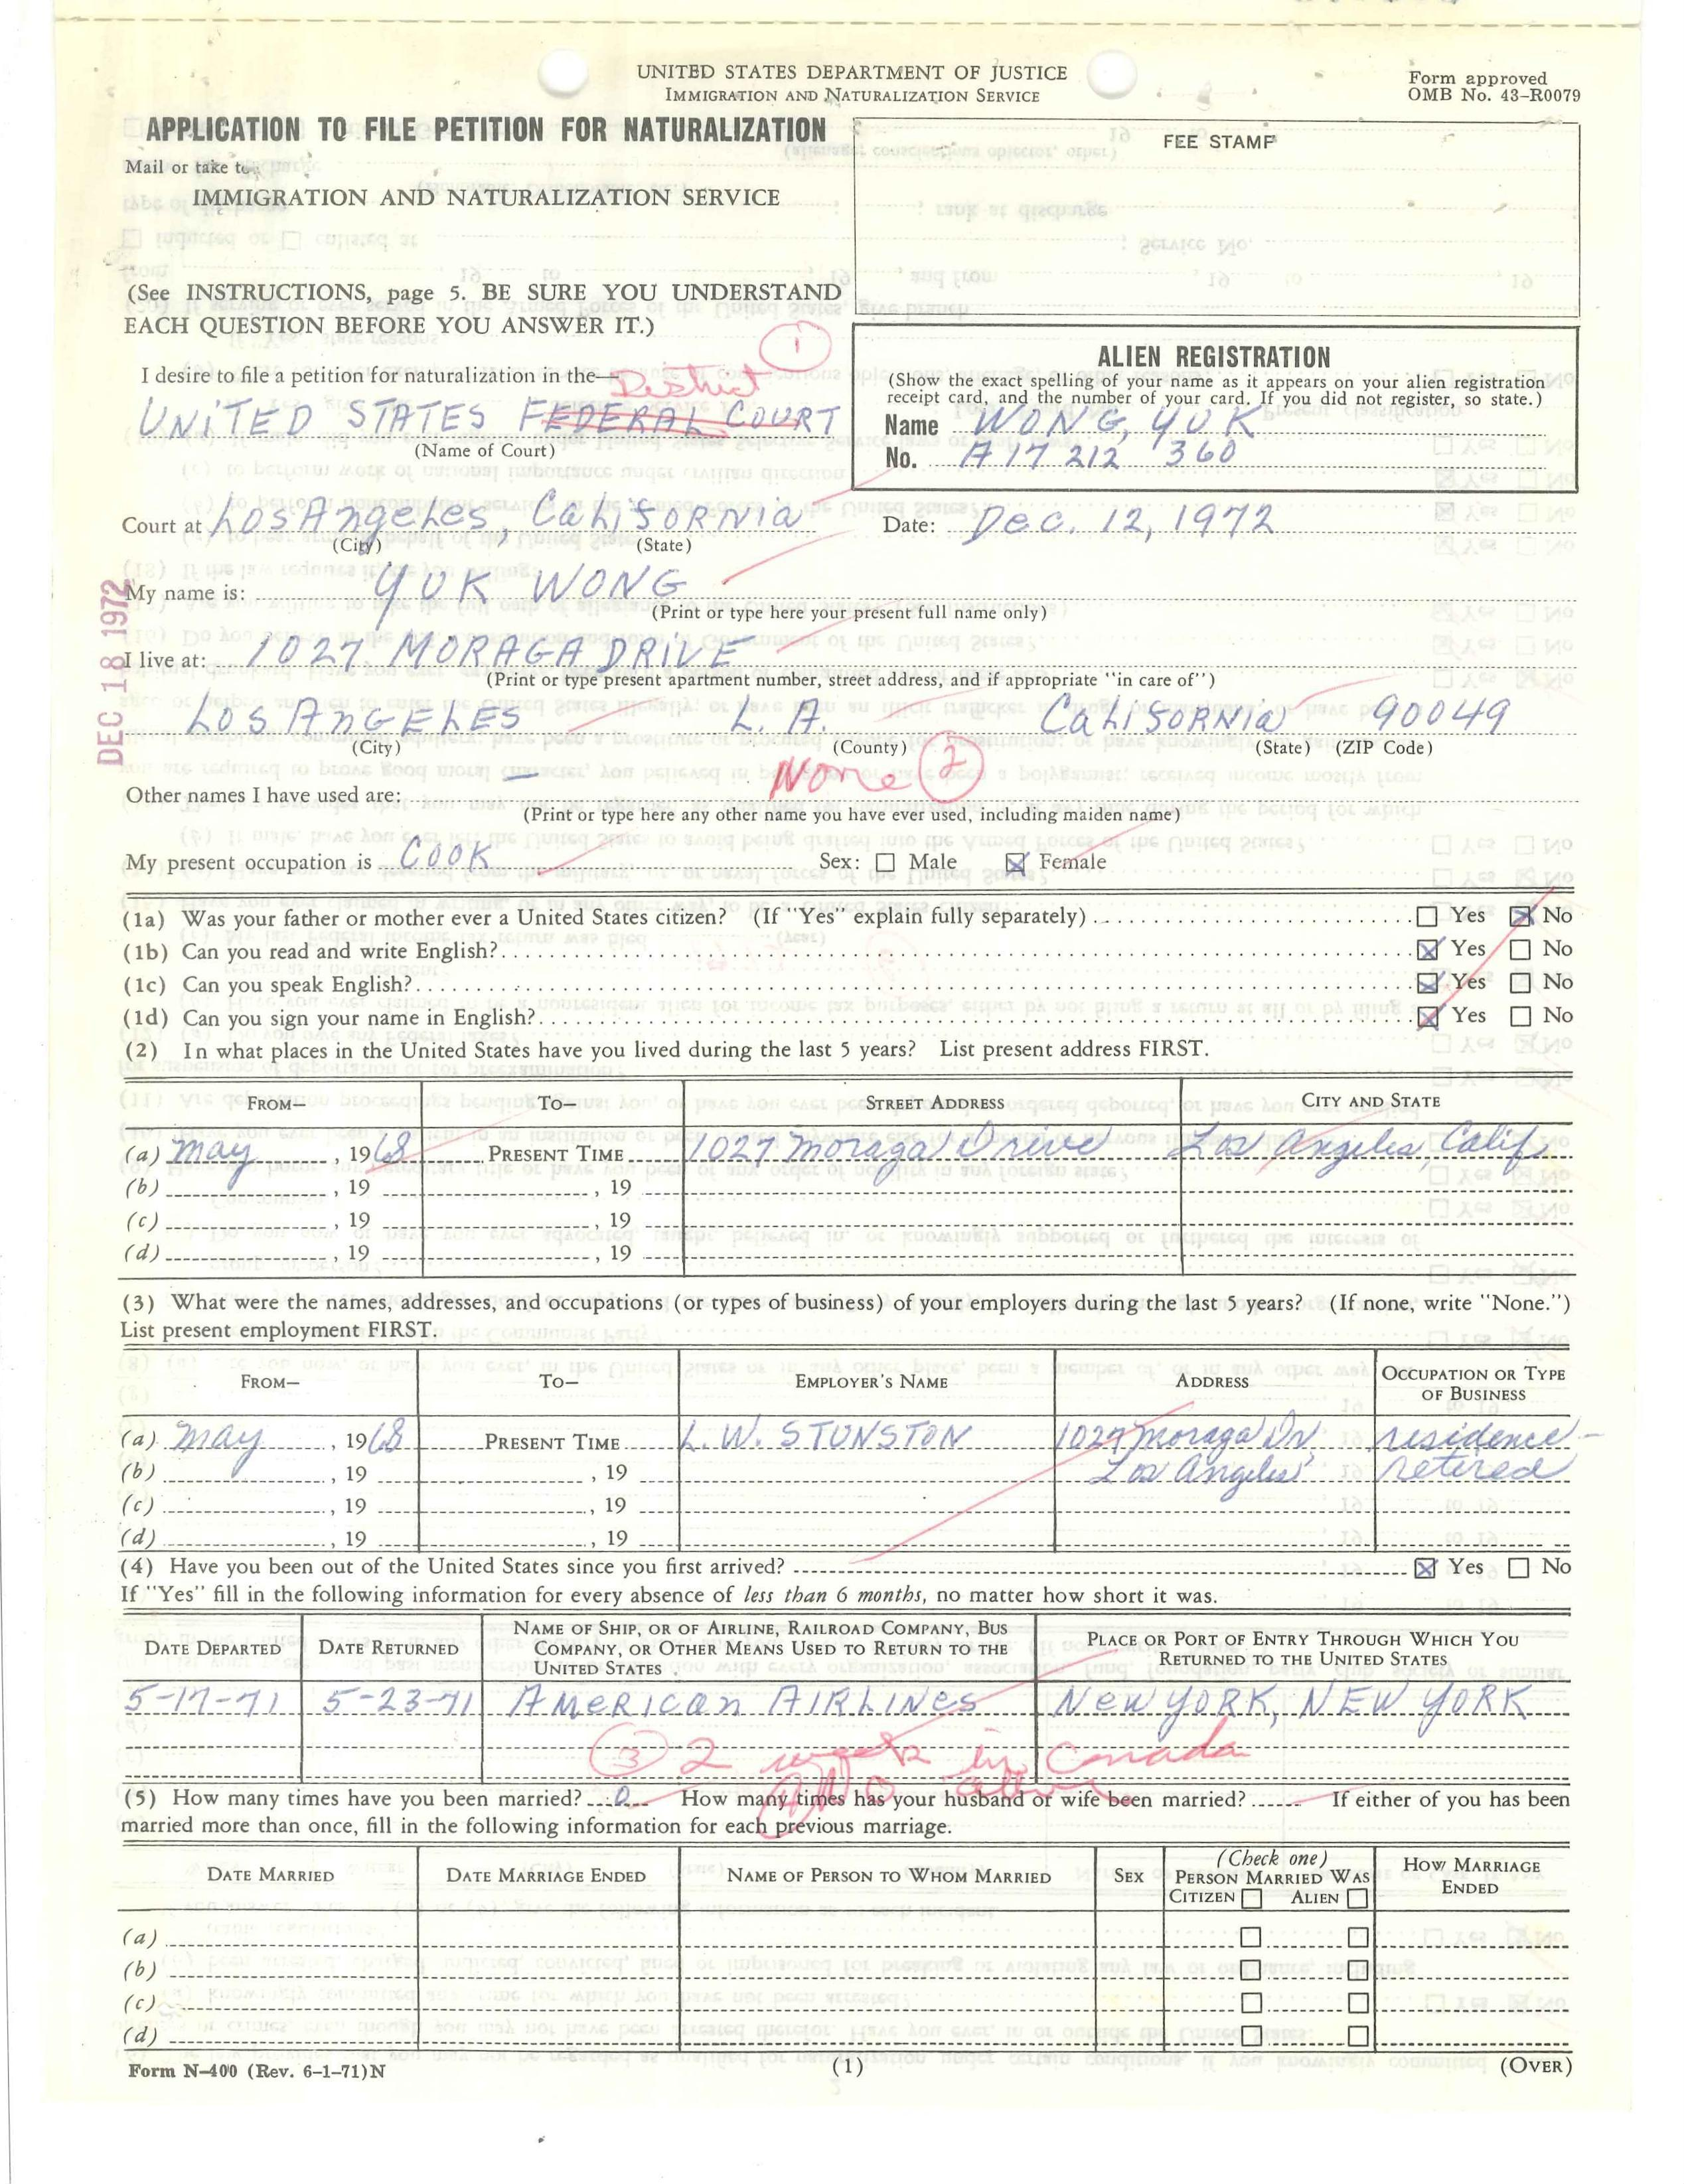 UNITED STATES DEPARTMENT OF JUSTICE
IMMIGRATION AND NATURALIZATION SERVICE
Form approved
OMB No. 43-R0079
APPLICATION TO FILE PETITION FOR NATURALIZATION
FEE STAMP
Mail or take to:
IMMIGRATION AND NATURALIZATION SERVICE
(See INSTRUCTIONS, page 5. BE SURE YOU UNDERSTAND
EACH QUESTION BEFORE YOU ANSWER IT.)
1
I desire to file a petition for naturalization in the— District
UNITED STATES FEDERAL COURT
(Name of Court)
ALIEN REGISTRATION
(Show the exact spelling of your name as it appears on your alien registration
receipt card, and the number of your card. If you did not register, so state.)
Name WONG, YUK
No. A17 212 360
Court at Los Angeles, California Date: Dec. 12, 1972
(City) (State)
My name is: YUK WONG
(Print or type here your present full name only)
DEC 18 1972
I live at: 1027 MORAGA DRIVE
(Print or type present apartment number, street address, and if appropriate "in care of")
LOS ANGELES L. A. California 90049
(City) (County) (State) (ZIP Code)
Other names I have used are: — None 2
(Print or type here any other name you have ever used, including maiden name)
My present occupation is COOK Sex: ☐ Male ☒ Female
(1a) Was your father or mother ever a United States citizen? (If "Yes" explain fully separately) ☐ Yes ☒ No
(1b) Can you read and write English? ☒ Yes ☐ No
(1c) Can you speak English? ☒ Yes ☐ No
(1d) Can you sign your name in English? ☒ Yes ☐ No
(2) In what places in the United States have you lived during the last 5 years? List present address FIRST.
FROM— TO— STREET ADDRESS CITY AND STATE
(a) May, 1968 PRESENT TIME 1027 Moraga Drive Los Angeles, Calif.
(b) , 19 , 19
(c) , 19 , 19
(d) , 19 , 19
(3) What were the names, addresses, and occupations (or types of business) of your employers during the last 5 years? (If none, write "None.")
List present employment FIRST.
FROM— TO— EMPLOYER'S NAME ADDRESS OCCUPATION OR TYPE OF BUSINESS
(a) May, 1968 PRESENT TIME L. W. STUNSTON 1027 Moraga Dr. residence -
(b) , 19 , 19 Los Angeles retired
(c) , 19 , 19
(d) , 19 , 19
(4) Have you been out of the United States since you first arrived? ☒ Yes ☐ No
If "Yes" fill in the following information for every absence of less than 6 months, no matter how short it was.
DATE DEPARTED DATE RETURNED NAME OF SHIP, OR OF AIRLINE, RAILROAD COMPANY, BUS COMPANY, OR OTHER MEANS USED TO RETURN TO THE UNITED STATES PLACE OR PORT OF ENTRY THROUGH WHICH YOU RETURNED TO THE UNITED STATES
5-17-71 5-23-71 AMERICAN AIRLINES NEW YORK, NEW YORK
3 2 week in Canada
No other
(5) How many times have you been married? 0 How many times has your husband or wife been married? If either of you has been
married more than once, fill in the following information for each previous marriage.
DATE MARRIED DATE MARRIAGE ENDED NAME OF PERSON TO WHOM MARRIED SEX (Check one) PERSON MARRIED WAS CITIZEN ☐ ALIEN ☐ HOW MARRIAGE ENDED
(a) ☐ ☐
(b) ☐ ☐
(c) ☐ ☐
(d) ☐ ☐
Form N-400 (Rev. 6-1-71)N (1) (OVER)